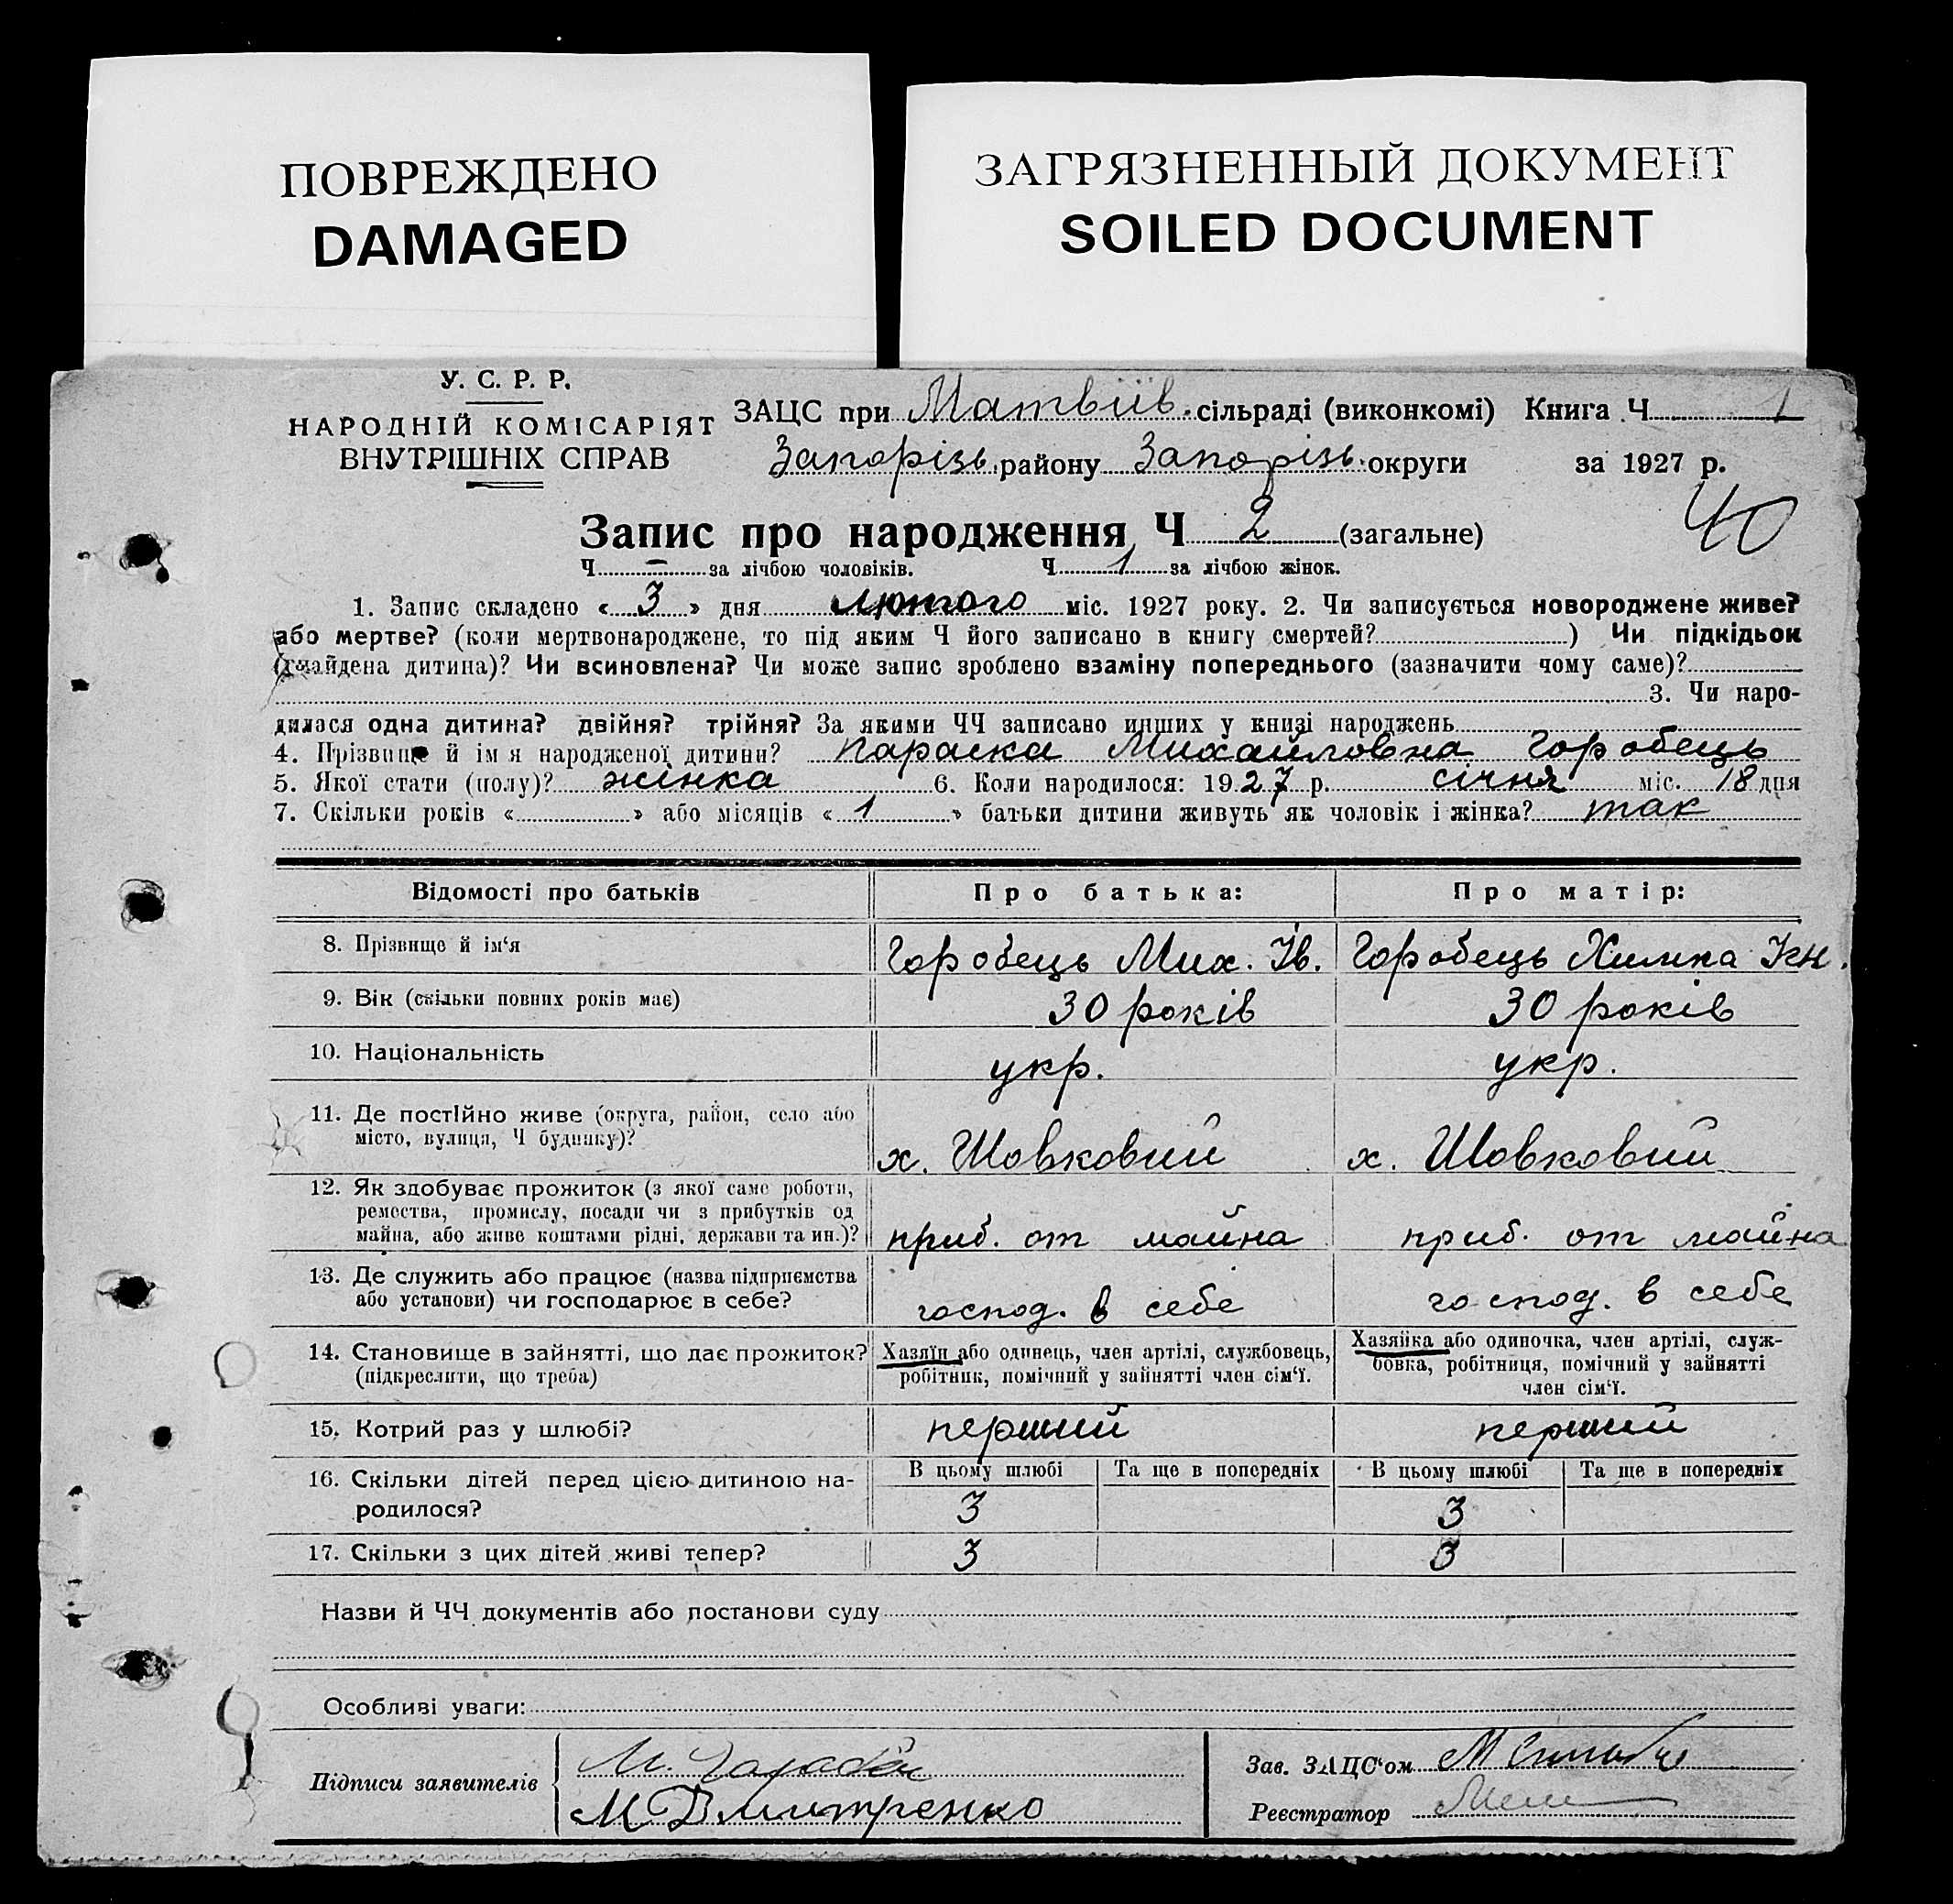 ПОВРЕЖДЕНО
DAMAGED
ЗАГРЯЗНЕННЫЙ ДОКУМЕНТ
SOILED DOCUMENT
У. С. Р. Р.
НАРОДНІЙ КОМІСАРІЯТ
ВНУТРІШНІХ СПРАВ
ЗАЦС при Матвіїв. сільраді (виконкомі) Книга Ч. 1
Запорізь. району Запорізь. округи за 1927 р.
40
Запис про народження Ч 2 (загальне)
Ч. – за лічбою чоловіків. Ч. 1 за лічбою жінок.
1. Запис складено « 3 » дня лютого міс. 1927 року. 2. Чи записується новороджене живе?
або мертве? (коли мертвонароджене, то під яким Ч його записано в книгу смертей? ) Чи підкідьок
(знайдена дитина)? Чи всиновлена? Чи може запис зроблено взаміну попереднього (зазначити чому саме)?
3. Чи наро-
дилася одна дитина? двійня? трійня? За якими ЧЧ записано инших у книзі народжень
4. Прізвище й ім я народженої дитини? Параска Михайловна Горобець
5. Якої стати (полу)? жінка 6. Коли народилося: 1927 р. січня міс. 18 дня
7. Скільки років « » або місяців « 1 » батьки дитини живуть як чоловік і жінка? так
Відомості про батьків Про батька: Про матір:
8. Прізвище й ім‘я Горобець Мих. Ів. Горобець Химка Ігн.
9. Вік (скільки повних років має) 30 років 30 років
10. Національність укр. укр.
11. Де постІйно живе (округа, район, село або
місто, вулиця, Ч будинку)? х. Шовковий х. Шовковий
12. Як здобуває прожиток (з якої саме роботи,
ремества, промислу, посади чи з прибутків од
майна, або живе коштами рідні, держави та ин.)? приб. от майна приб. от майна
13. Де служить або працює (назва підприємства
або установи) чи господарює в себе? господ. в себе господ. в себе
14. Становище в зайнятті, що дає прожиток?
(підкреслити, що треба)
Хазяїн або одинець, член артілі, службовець,
робітник, помічний у зайнятті член сім‘ї.
Хазяйка або одиночка, член артілі, служ-
бовка, робітниця, помічний у зайнятті
член сім‘ї.
15. Котрий раз у шлюбі? перший перший
16. Скільки дітей перед цією дитиною на-
родилося?
В цьому шлюбі Та ще в попередніх В цьому шлюбі Та ще в попередніх
3 3
17. Скільки з цих дітей живі тепер? 3 3
Назви й ЧЧ документів або постанови суду
Особливі уваги:
Підписи заявителів М. Горобец
М Дмитренко
Зав. ЗАЦС‘ом
Реєстратор